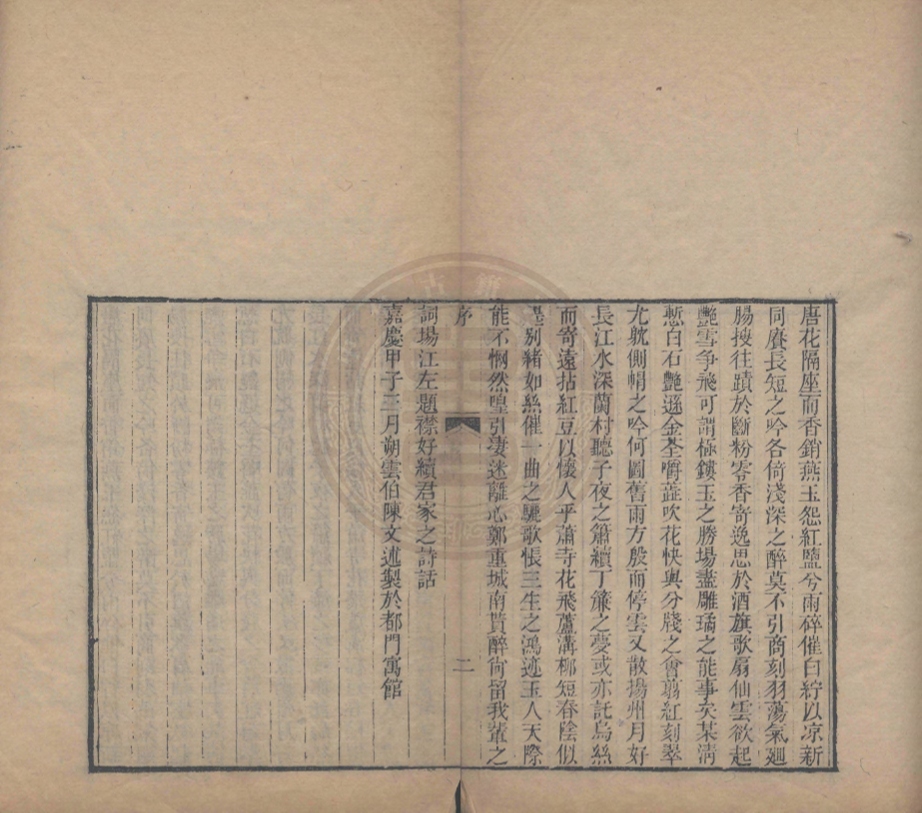 唐花隔座而香銷燕玉怨紅鹽兮雨碎催白紵以涼新
同賡長短之吟各倚淺深之醉莫不引商刻羽蕩氣迴
腸搜往蹟於斷粉零香寄逸思於酒旗歌扇仙雲欲起
艷雪争飛可謂極鏤玉之勝場盡雕璚之能事矣某清
慙白石艷遜金荃嚼蕋吹花快與分牋之會翦紅刻翠
尤躭側帽之吟何圖舊雨方殷而停雲又散揚州月好
長江水深蘭村聽子夜之簫續丁簾之憂或亦託烏絲
而寄遠拈紅豆以懷人乎蕭寺花飛蘆溝柳短春陰似
墨别緒如絲催一曲之驪歌悵三生之鴻迹玉人天際
能不惘然喤引凄迷離心鄭重城南貰醉尙留我輩之
序
二
詞場江左題襟好續君家之詩話
嘉慶甲子三月朔雲伯陳文述製於都門寓館